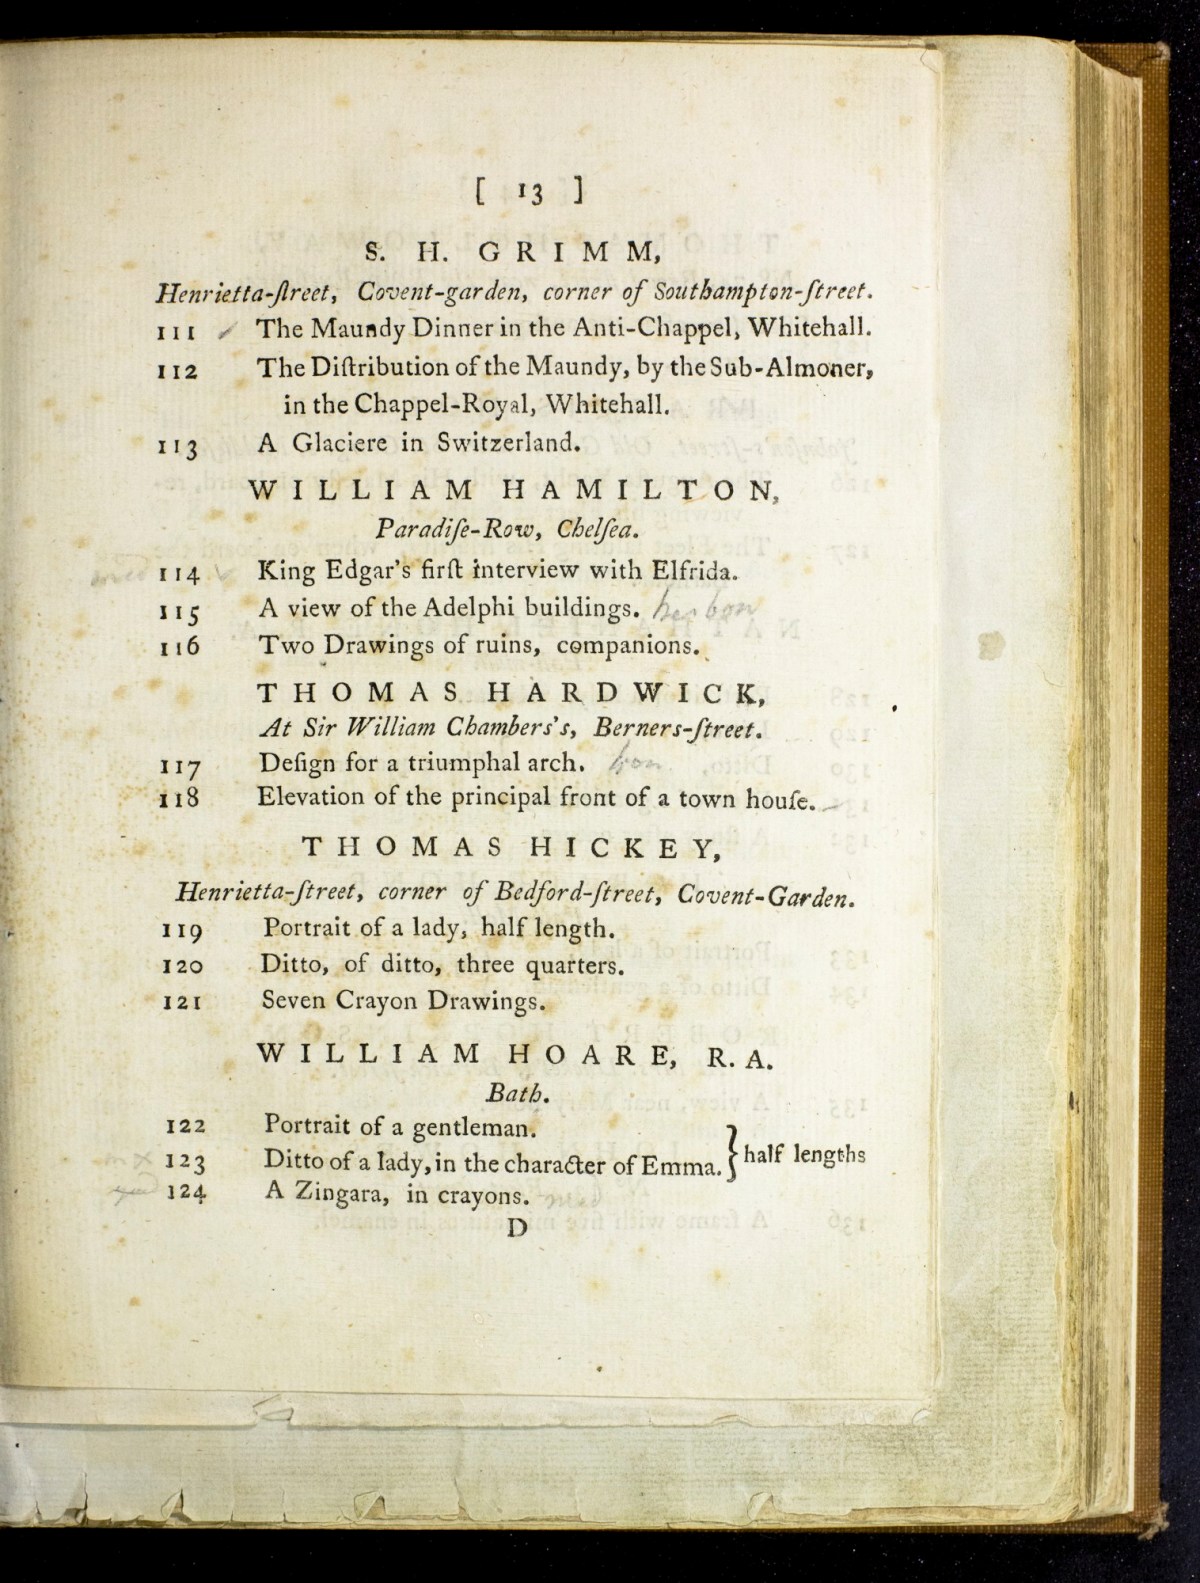 [ 13 ]
S. H. GRIMM,
Henrietta-ſtreet, Covent-garden, corner of Southampton-ſtreet.
111 The Maundy Dinner in the Anti-Chappel, Whitehall.
112 The Diſtribution of the Maundy, by the Sub-Almoner,
in the Chappel-Royal, Whitehall.
113 A Glaciere in Switzerland.
WILLIAM HAMILTON,
Paradiſe-Row, Chelſea.
114 King Edgar's firſt interview with Elfrida.
115 A view of the Adelphi buildings.
116 Two Drawings of ruins, companions.
THOMAS HARDWICK,
At Sir William Chambers's, Berners-ſtreet.
117 Deſign for a triumphal arch.
118 Elevation of the principal front of a town houſe.
THOMAS HICKEY,
Henrietta-ſtreet, corner of Bedford-ſtreet, Covent-Garden.
119 Portrait of a lady, half length.
120 Ditto, of ditto, three quarters.
121 Seven Crayon Drawings.
WILLIAM HOARE, R. A.
Bath.
122 Portrait of a gentleman.
123 Ditto of a lady, in the character of Emma. } half lengths
124 A Zingara, in crayons.
D